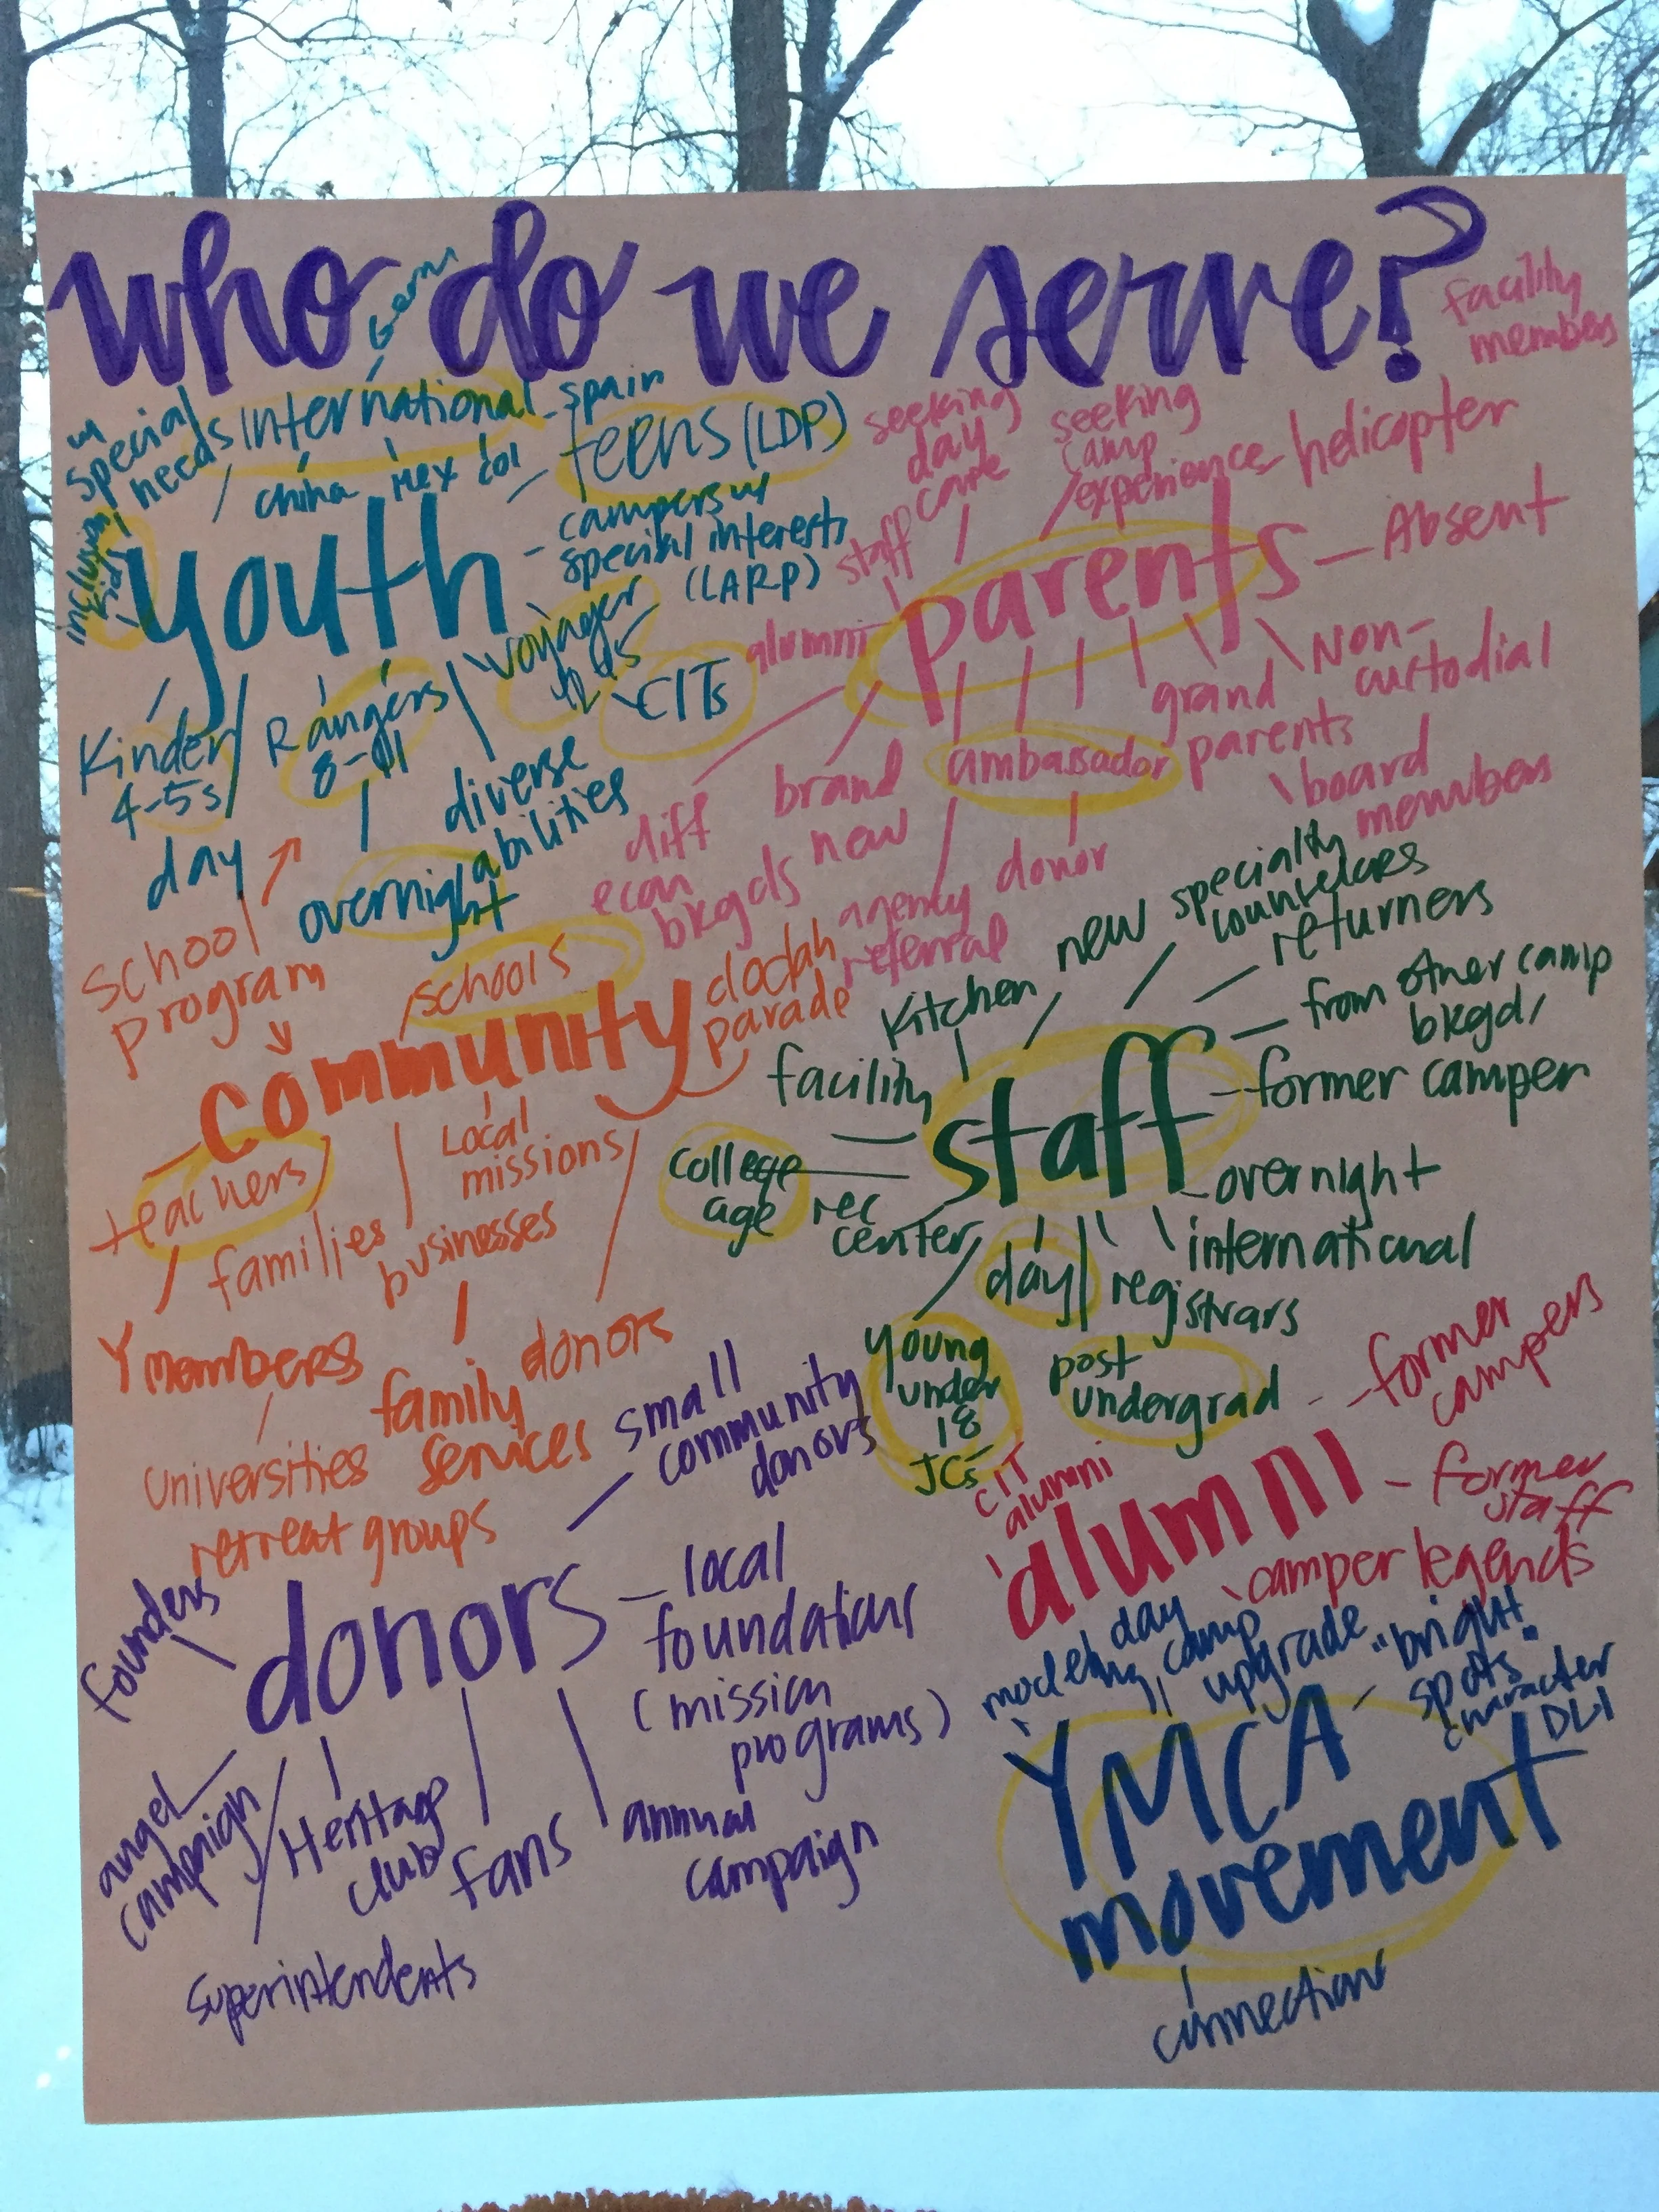 who do we serve?
Germ
w/
special
needs
International
spain
china
Mex
Col
teens (LDP)
campers w/
special interests
(LARP)
inclusion
kids
youth
Kinder
4-5s
Rangers
8-11
voyager
CITs
day
overnight
diverse
abilities
facility
members
seeking
day
care
seeking
camp
experience
helicopter
Absent
staff
alumni
parents
Non-
custodial
grand
parents
board
members
ambassador
brand
new
diff
econ
bkgds
agency
referral
donor
school
program
schools
doodah
parade
community
teachers
families
Local
missions
businesses
Y members
family
services
donors
universities
retreat groups
kitchen
new
specialty
counselors
returners
from other camp
bkgd
former camper
facility
staff
college
age
rec
center
overnight
international
day
registrars
young
under
18
JCs
post
undergrad
former
campers
CIT
alumni
alumni
former
staff
camper legends
small
community
donors
founders
donors
local
foundations
(mission
programs)
angel
campaign
Heritage
club
fans
annual
campaign
superintendents
modeling
day
camp
upgrade
"bright
spots"
character
DLI
YMCA
movement
connection